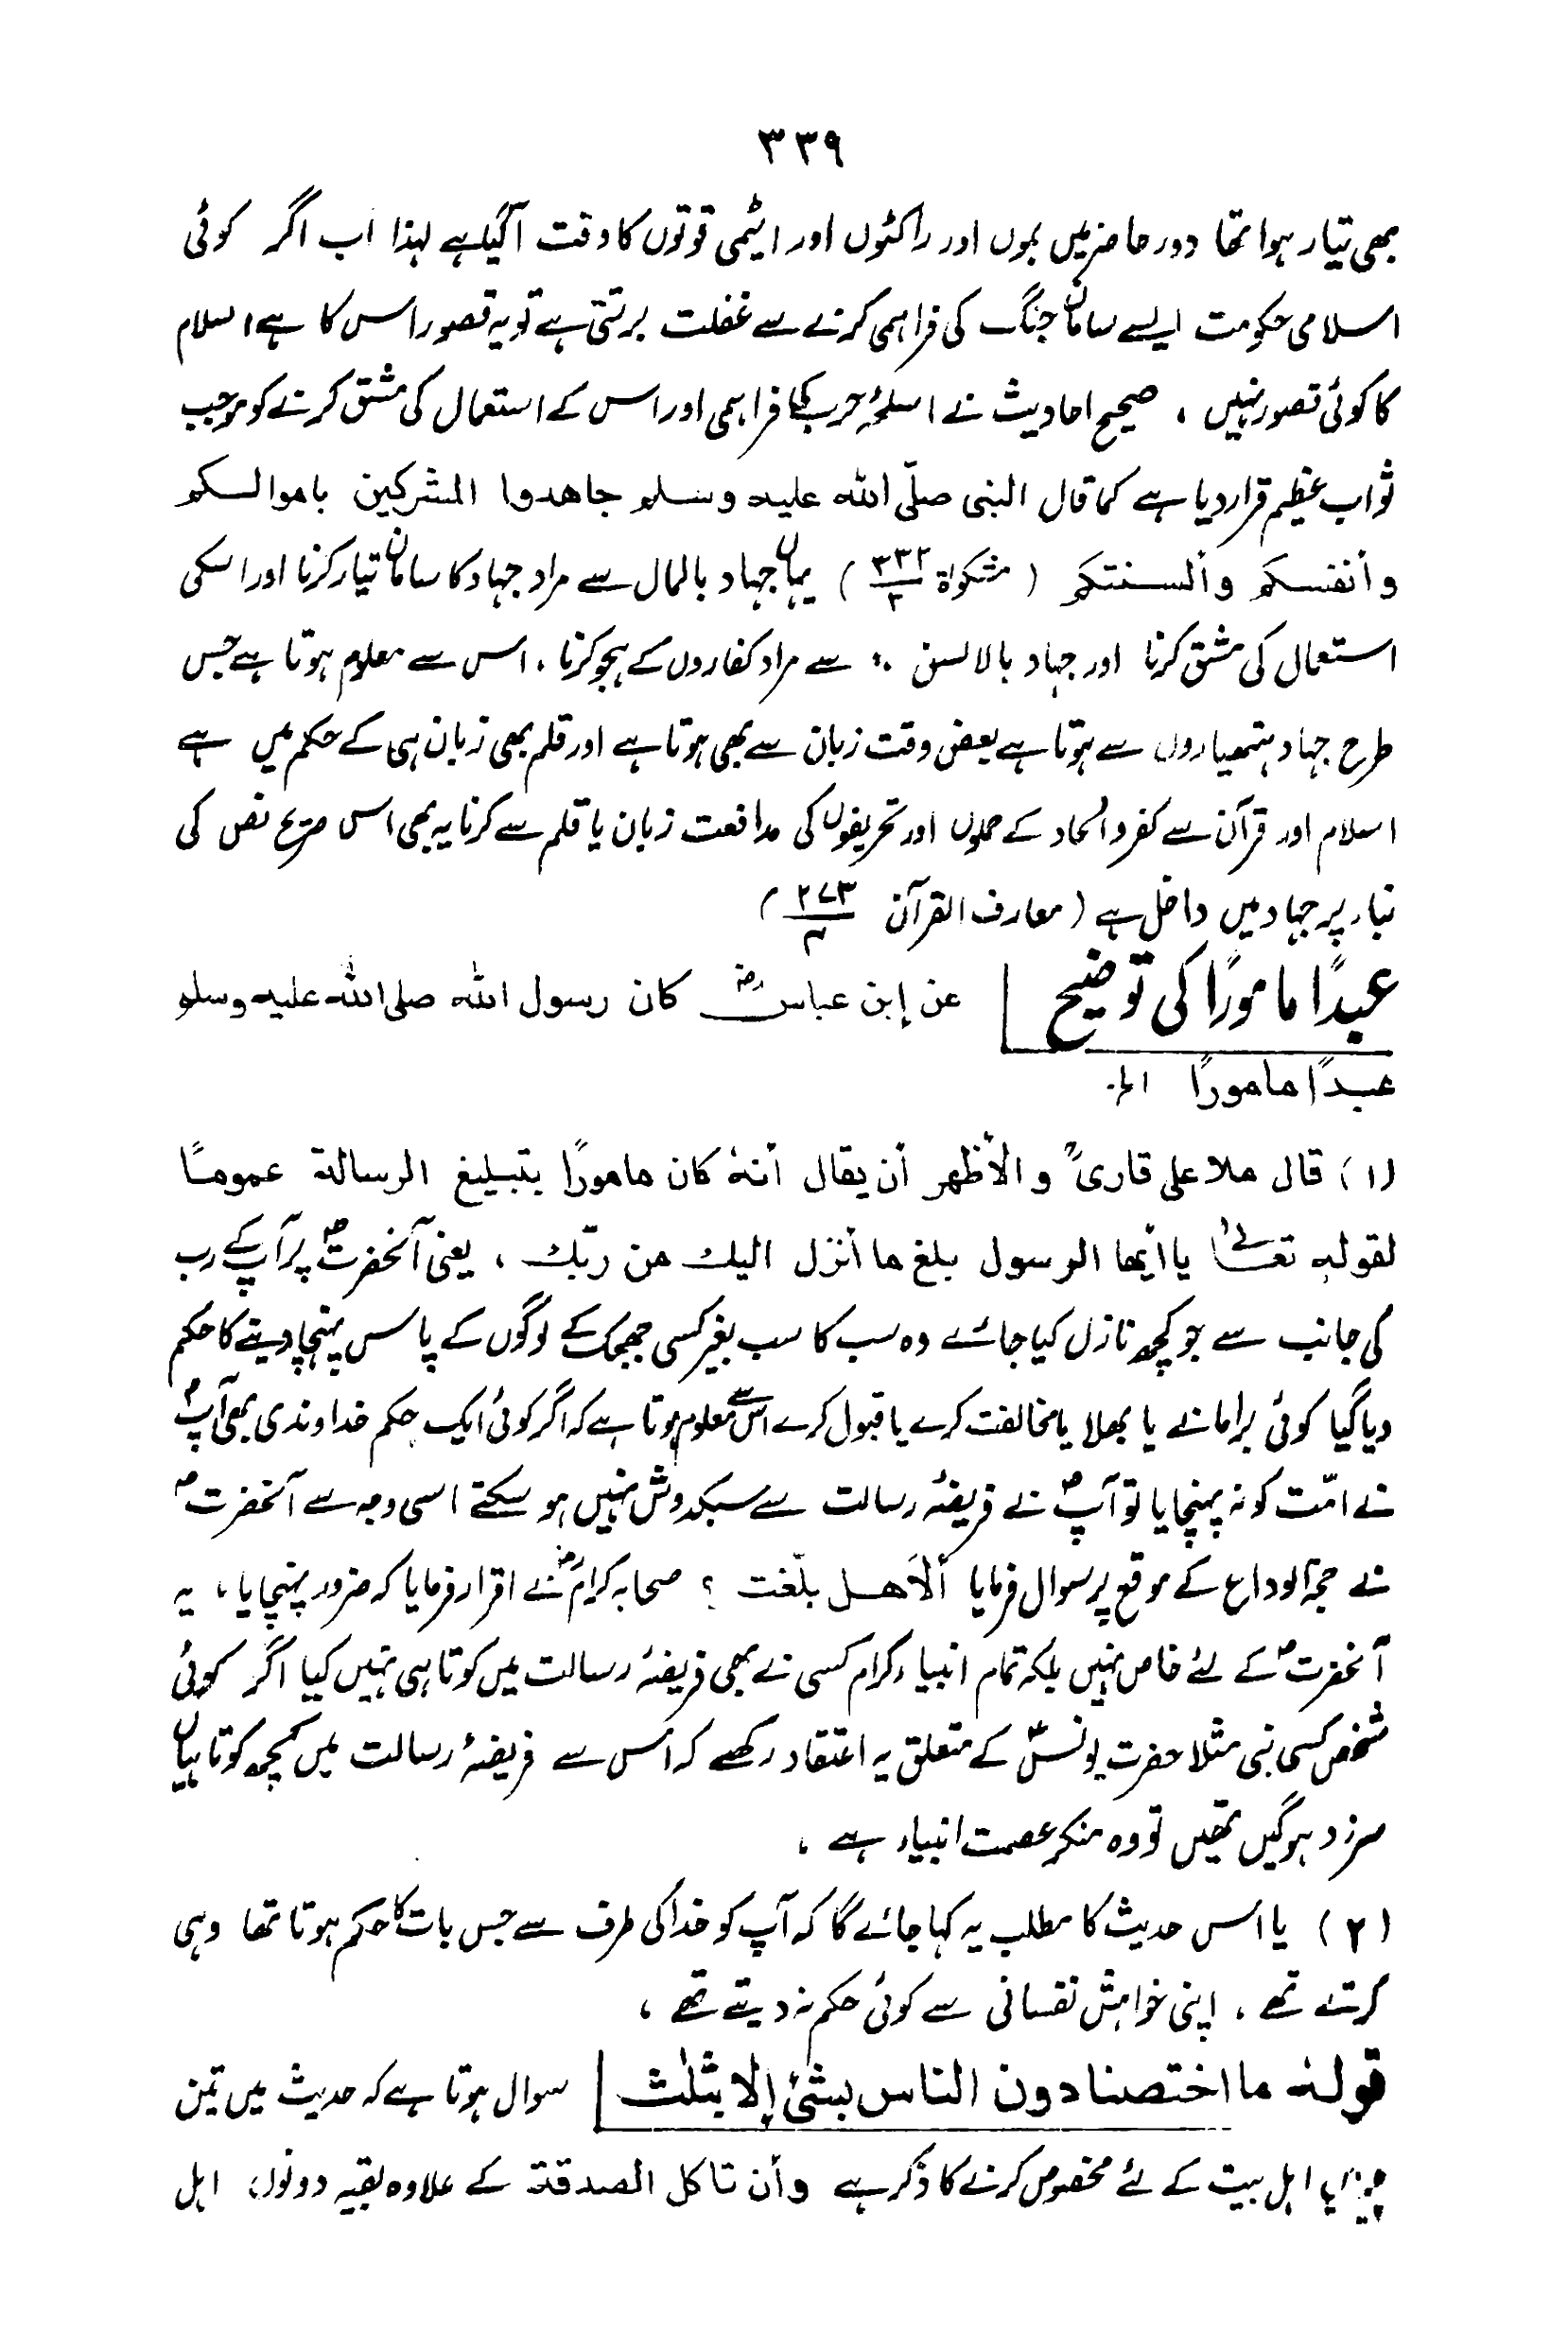 ۳۳۹
بھی تیار ہوا تھا دور حاضر میں بموں اور راکٹوں اور ایٹمی قوتوں کا وقت آگیا ہے لہذا اب اگر کوئی
اسلامی حکومت ایسے سامان جنگ کی فراہمی کرنے سے غفلت برتتی ہے تو یہ قصور اس کا ہے اسلام
کا کوئی قصور نہیں ، صحیح احادیث نے اسلحۂ حرب کا فراہمی اور اس کے استعمال کی مشق کرنے کو موجب
ثواب عظیم قرار دیا ہے کما قال النبی صلّی اللہ علیہ وسلم جاھدوا المشرکین باموالکم
وأنفسکم وألسنتکم ( مشکوٰۃ ۳۳۲/۲ ) یہاں جہاد بالمال سے مراد جہاد کا سامان تیار کرنا اور اسکی
استعمال کی مشق کرنا اور جہاد بالالسن ،، سے مراد کفاروں کے ہجو کرنا ، اس سے معلوم ہوتا ہے جس
طرح جہاد ہتھیاروں سے ہوتا ہے بعض وقت زبان سے بھی ہوتا ہے اور قلم بھی زبان ہی کے حکم میں ہے
اسلام اور قرآن سے کفر والحاد کے حملوں اور تحریفوں کی مدافعت زبان یا قلم سے کرنا یہ بھی اس صریح نص کی
بناء پر جہاد میں داخل ہے ( معارف القرآن ۲۷۳/۴ )
عبدًا مامورًا کی توضیح | عن إبن عباسؓ کان رسول اللہ صلی اللہ علیہ وسلم
عبدًا مامورًا الخ۔
(۱) قال ملا علی قاریؒ والأظهر أن یقال أنهٗ کان مامورًا بتبلیغ الرسالة عمومًا
لقولہٖ تعالیٰ یا أیها الرسول بلغ ما أنزل الیك من ربّك ، یعنی آنحضرتؐ پر آپؐ کے رب
کی جانب سے جو کچھ نازل کیا جائے وہ سب کا سب بغیر کسی جھجک کے لوگوں کے پاس پہنچا دیتے کا حکم
دیا گیا کوئی برا مانے یا بھلا یا مخالفت کرے یا قبول کرے اس سے معلوم ہوتا ہے کہ اگر کوئی ایک حکم خداوندی بھی آپؐ
نے امّت کو نہ پہنچایا تو آپؐ نے فریضۂ رسالت سے سبکدوش نہیں ہو سکتے اسی وجہ سے آنحضرتؐ
نے حجۃ الوداع کے موقع پر سوال فرمایا ألاَ ھل بلّغت ؟ صحابہ کرامؓ نے اقرار فرمایا کہ ضرور پہنچایا ، یہ
آنحضرتؐ کے لئے خاص نہیں بلکہ تمام انبیاء کرام کسی نے بھی فریضۂ رسالت میں کوتاہی نہیں کیا اگر کوئی
شخص کسی نبی مثلا حضرت یونسؑ کے متعلق یہ اعتقاد رکھے کہ اُس سے فریضۂ رسالت میں کچھ کوتاہیاں
سرزد ہوگیں تھیں تو وہ منکر عصمت انبیاء ہے ،
(۲) یا اس حدیث کا مطلب یہ کہا جائے گا کہ آپ کو خدا کی طرف سے جس بات کا حکم ہوتا تھا وہی
کرتے تھے ، اپنی خواہش نفسانی سے کوئی حکم نہ دیتے تھے ،
قولہٗ ما اختصنا دون الناس بشئ إلا بثلٰث | سوال ہوتا ہے کہ حدیث میں تین
چیزیں اہل بیت کے لئے مخصوص کرنے کا ذکر ہے وأن تاکل الصدقة کے علاوہ بقیہ دونوں اہل